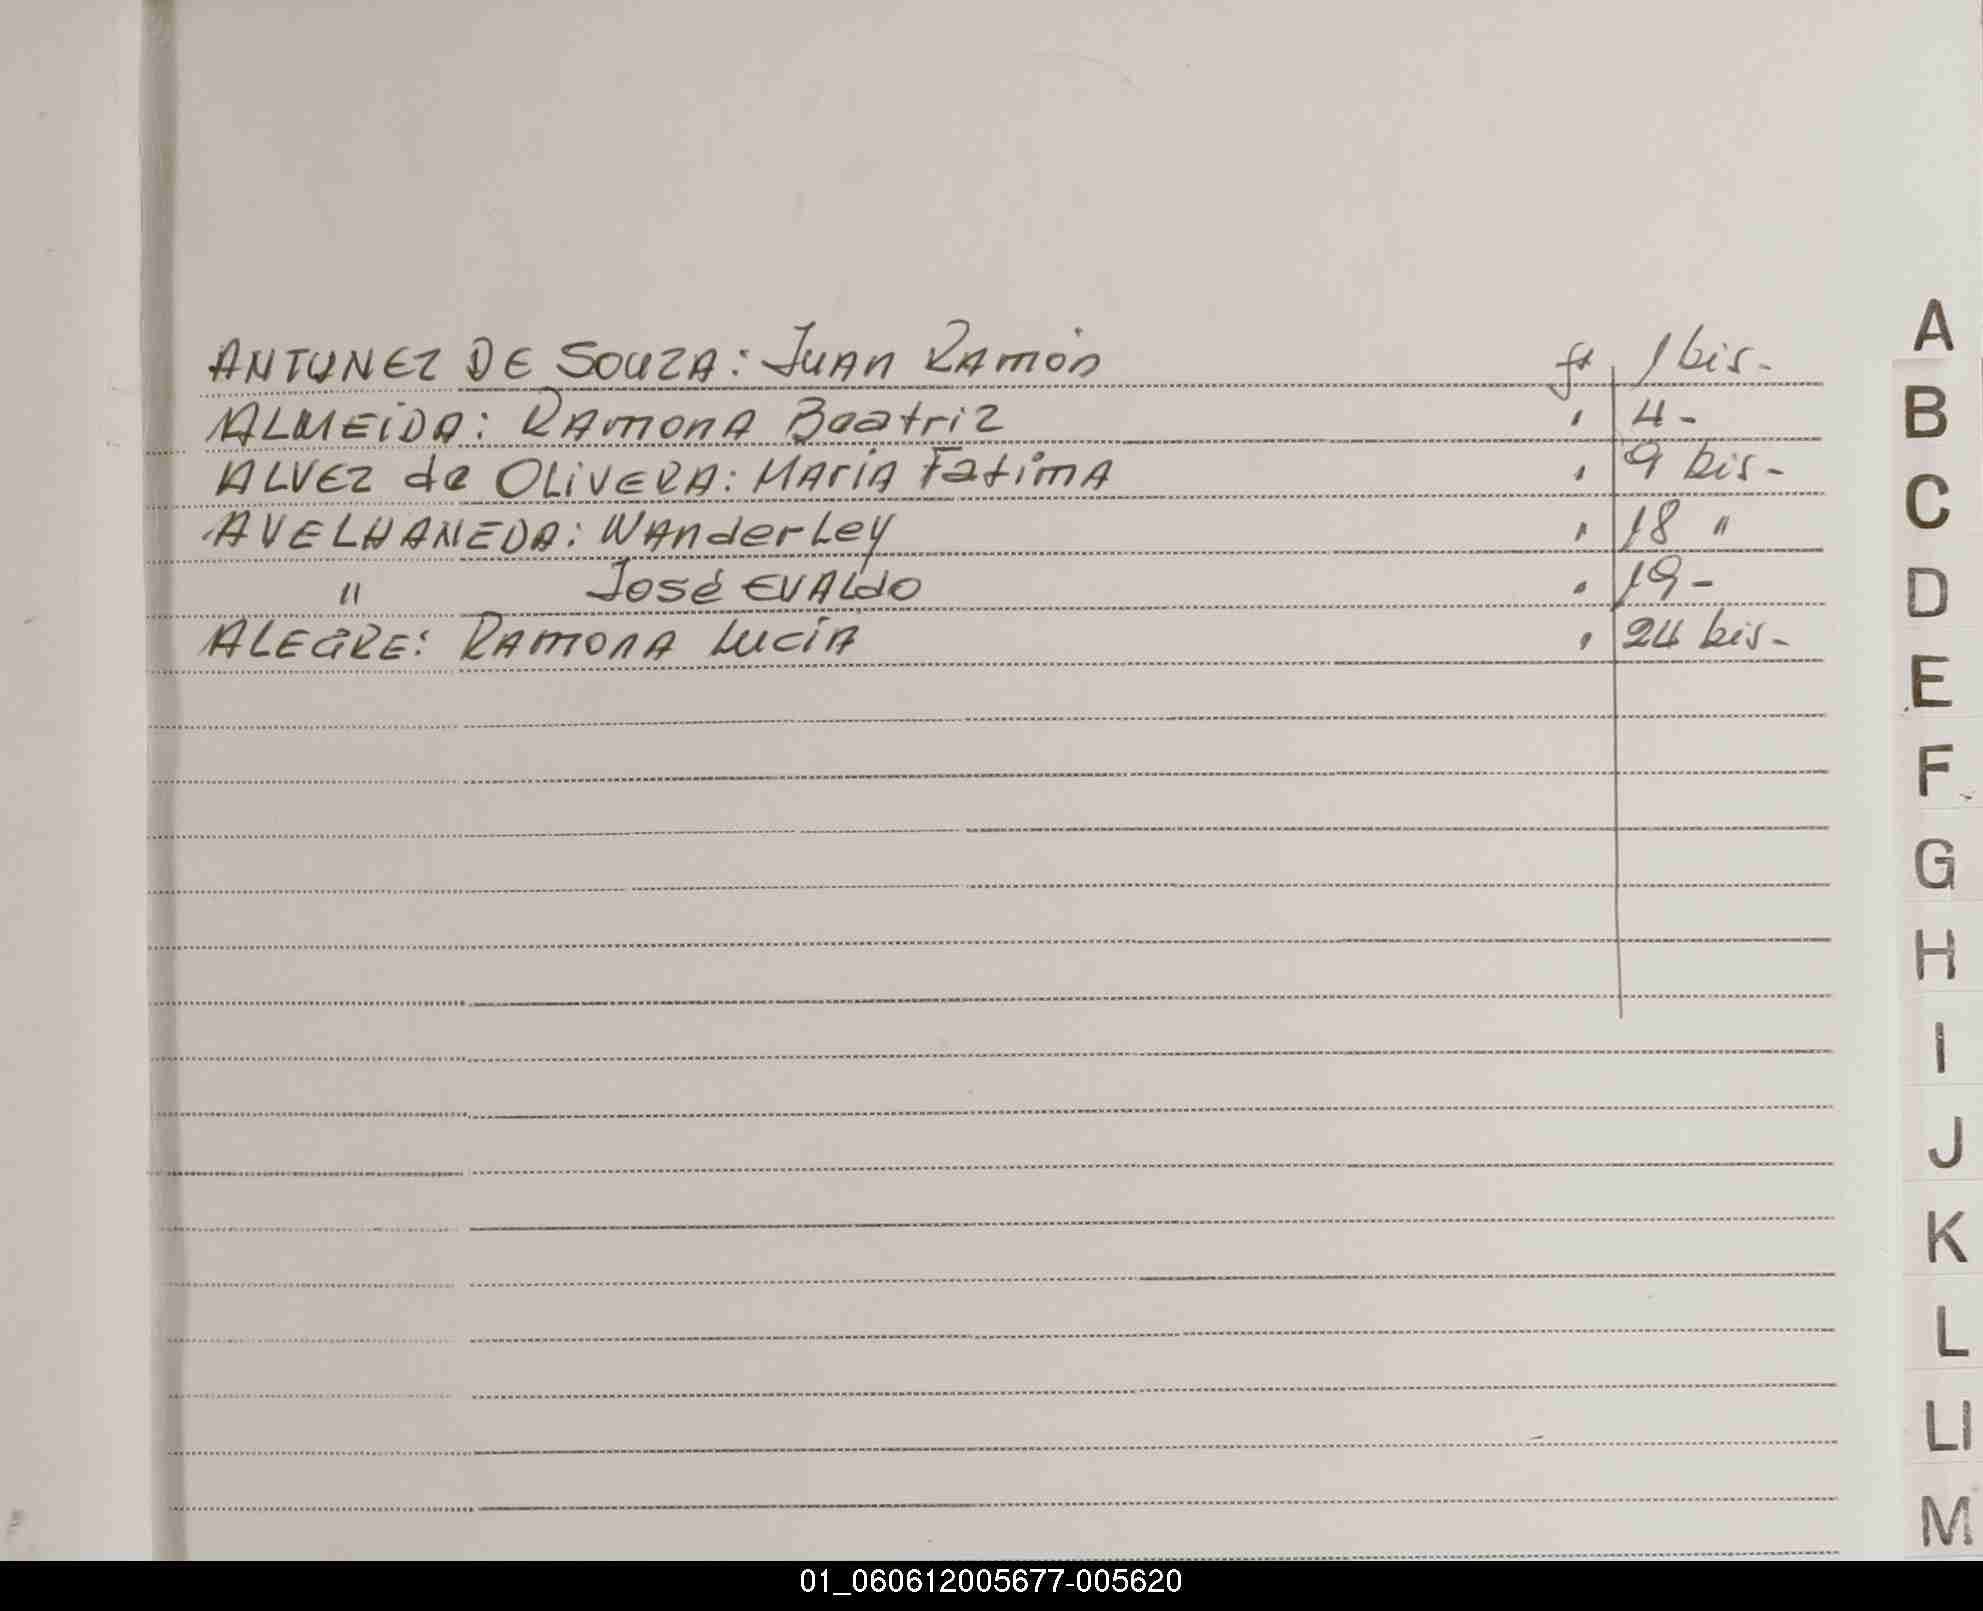 ANTUNEZ DE SOUZA: Juan Ramón fs 1 bis-
ALMEIDA: Ramona Beatriz " 4-
ALVEZ de OLIVERA: Maria Fatima " 9 bis-
AVELHANEDA: Wanderley " 18 "
" José Evaldo " 19-
ALEGRE: Ramona Lucía " 24 bis-
A
B
C
D
E
F
G
H
I
J
K
L
Ll
M
01_060612005677-005620